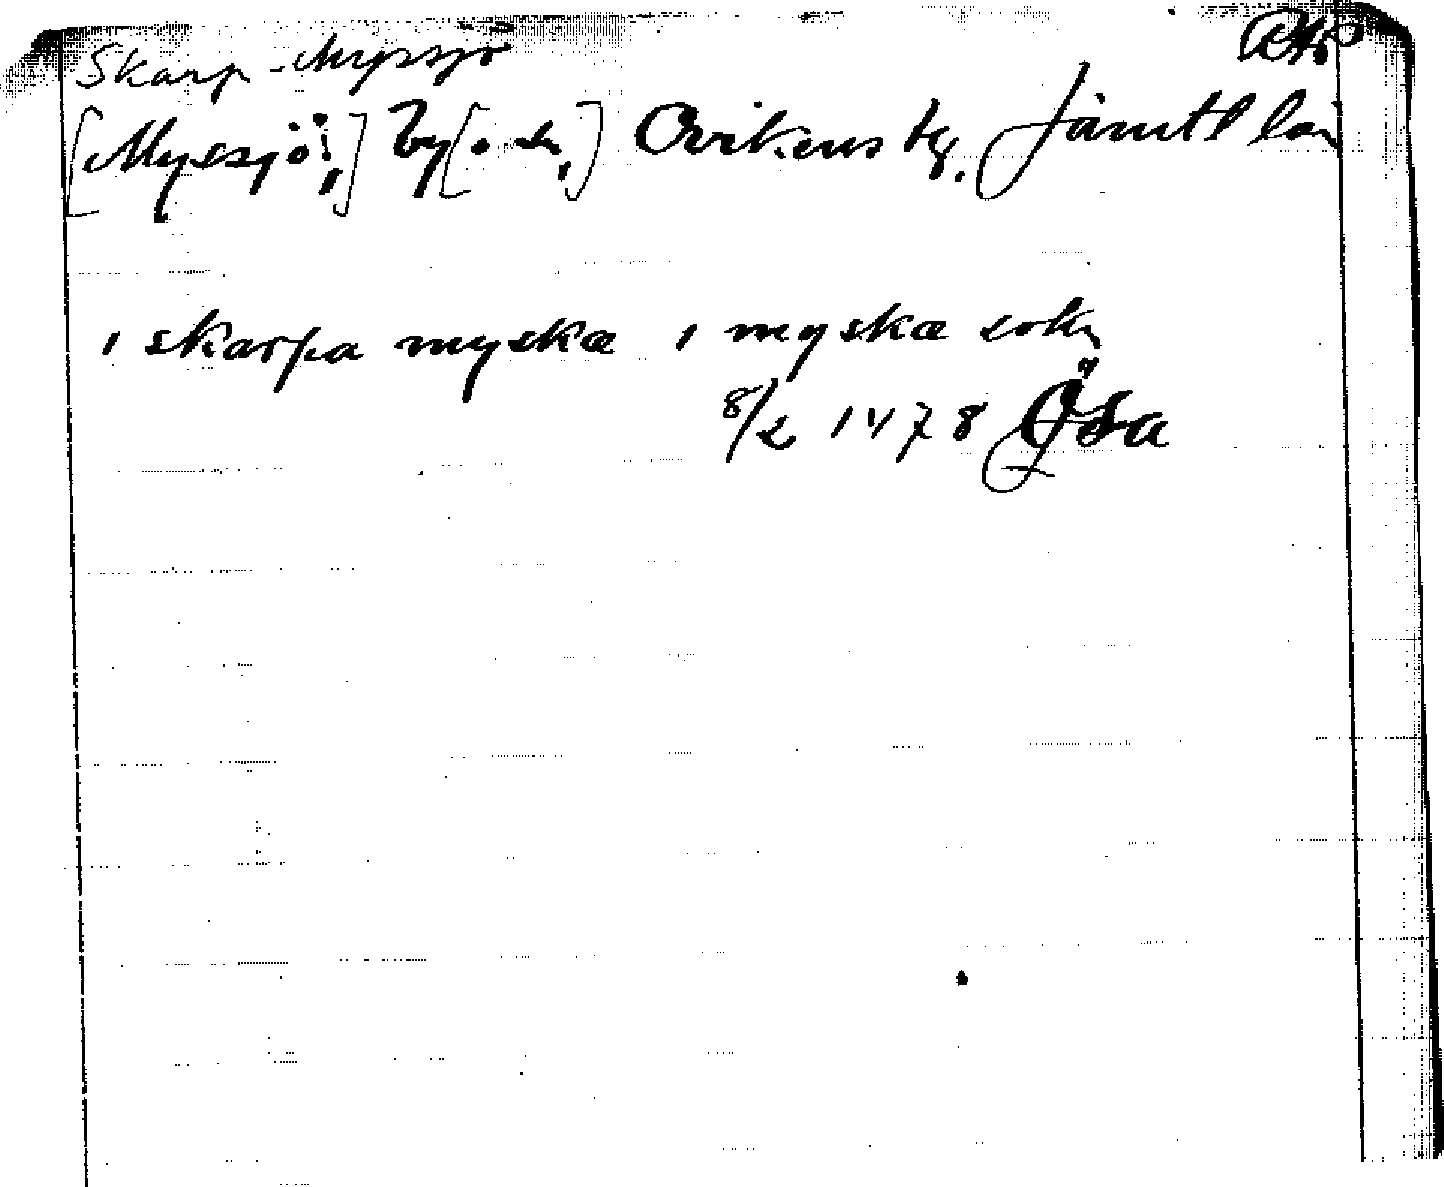 Skarp-Myssjö
[Myssjö,] by [o. sn,] Ovikens tg. Jämtl län
i skarpa myskæ i myskæ sokn
8/2 1478 ÖSa